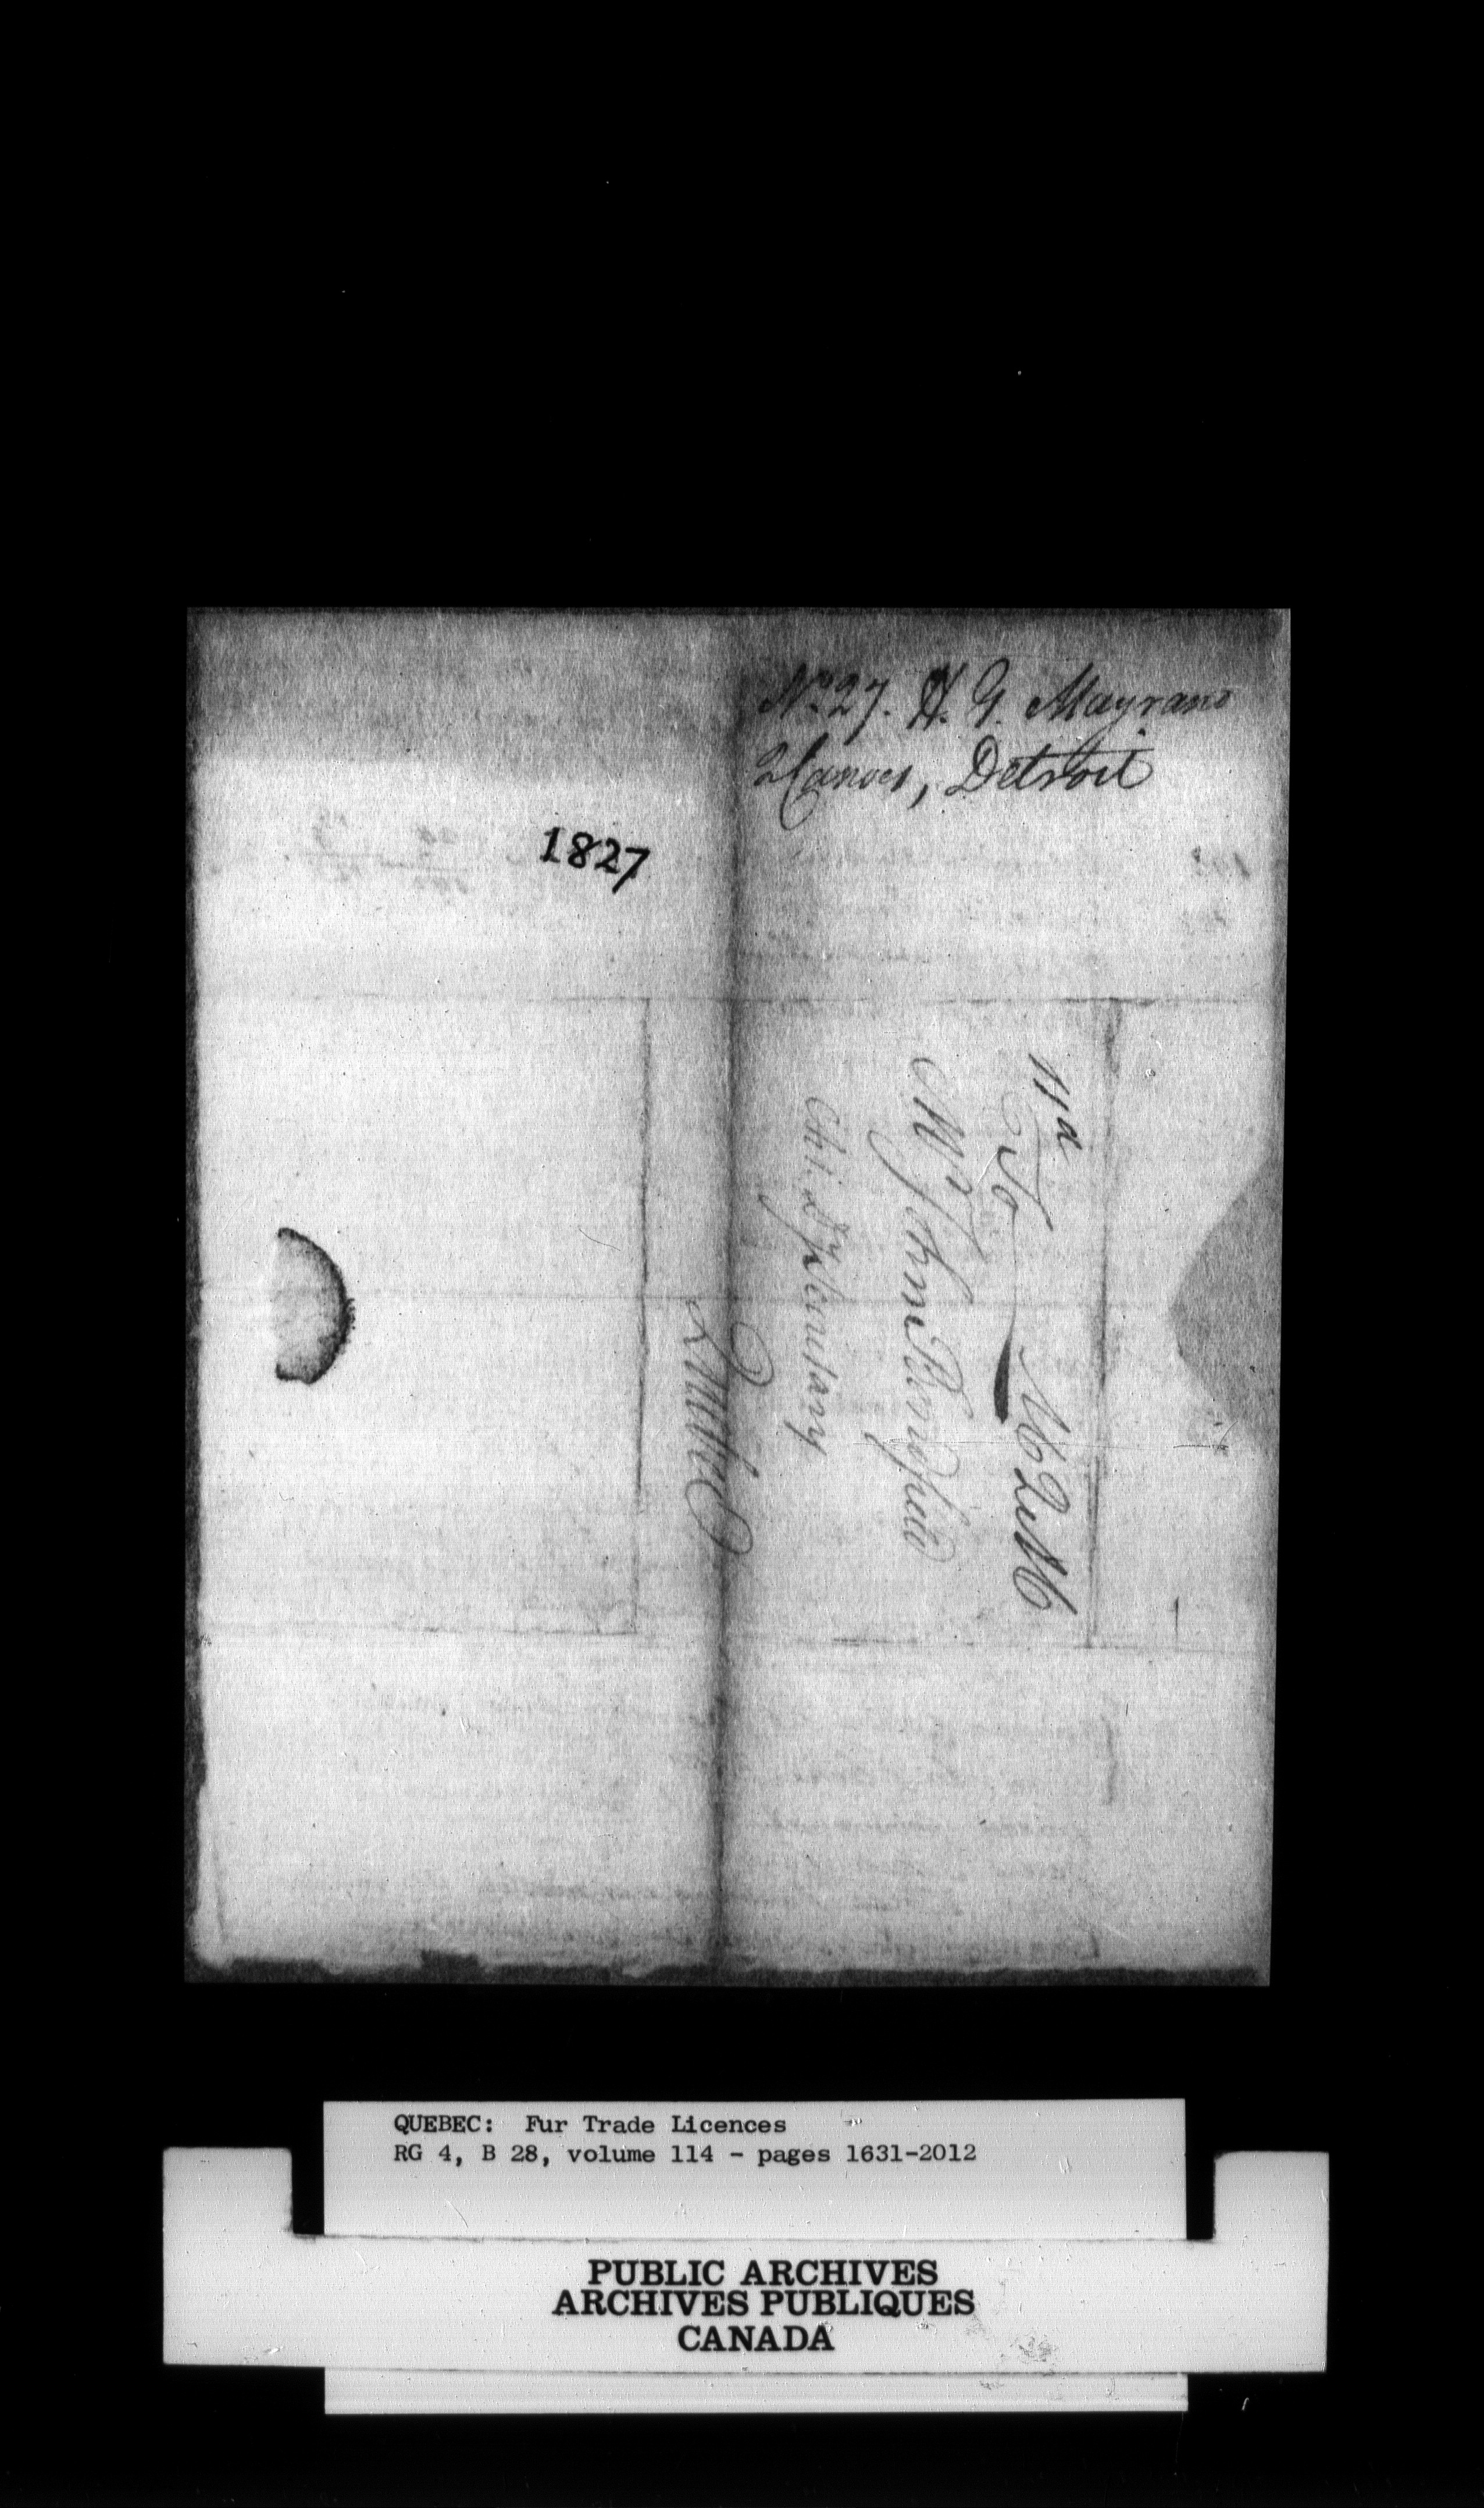 No. 27. H. G. Mayrand
2 Canoes, Detroit
1827
11d
To
Mr. John
Quebec
QUEBEC: Fur Trade Licences
RG 4, B 28, volume 114 - pages 1631-2012
PUBLIC ARCHIVES
ARCHIVES PUBLIQUES
CANADA